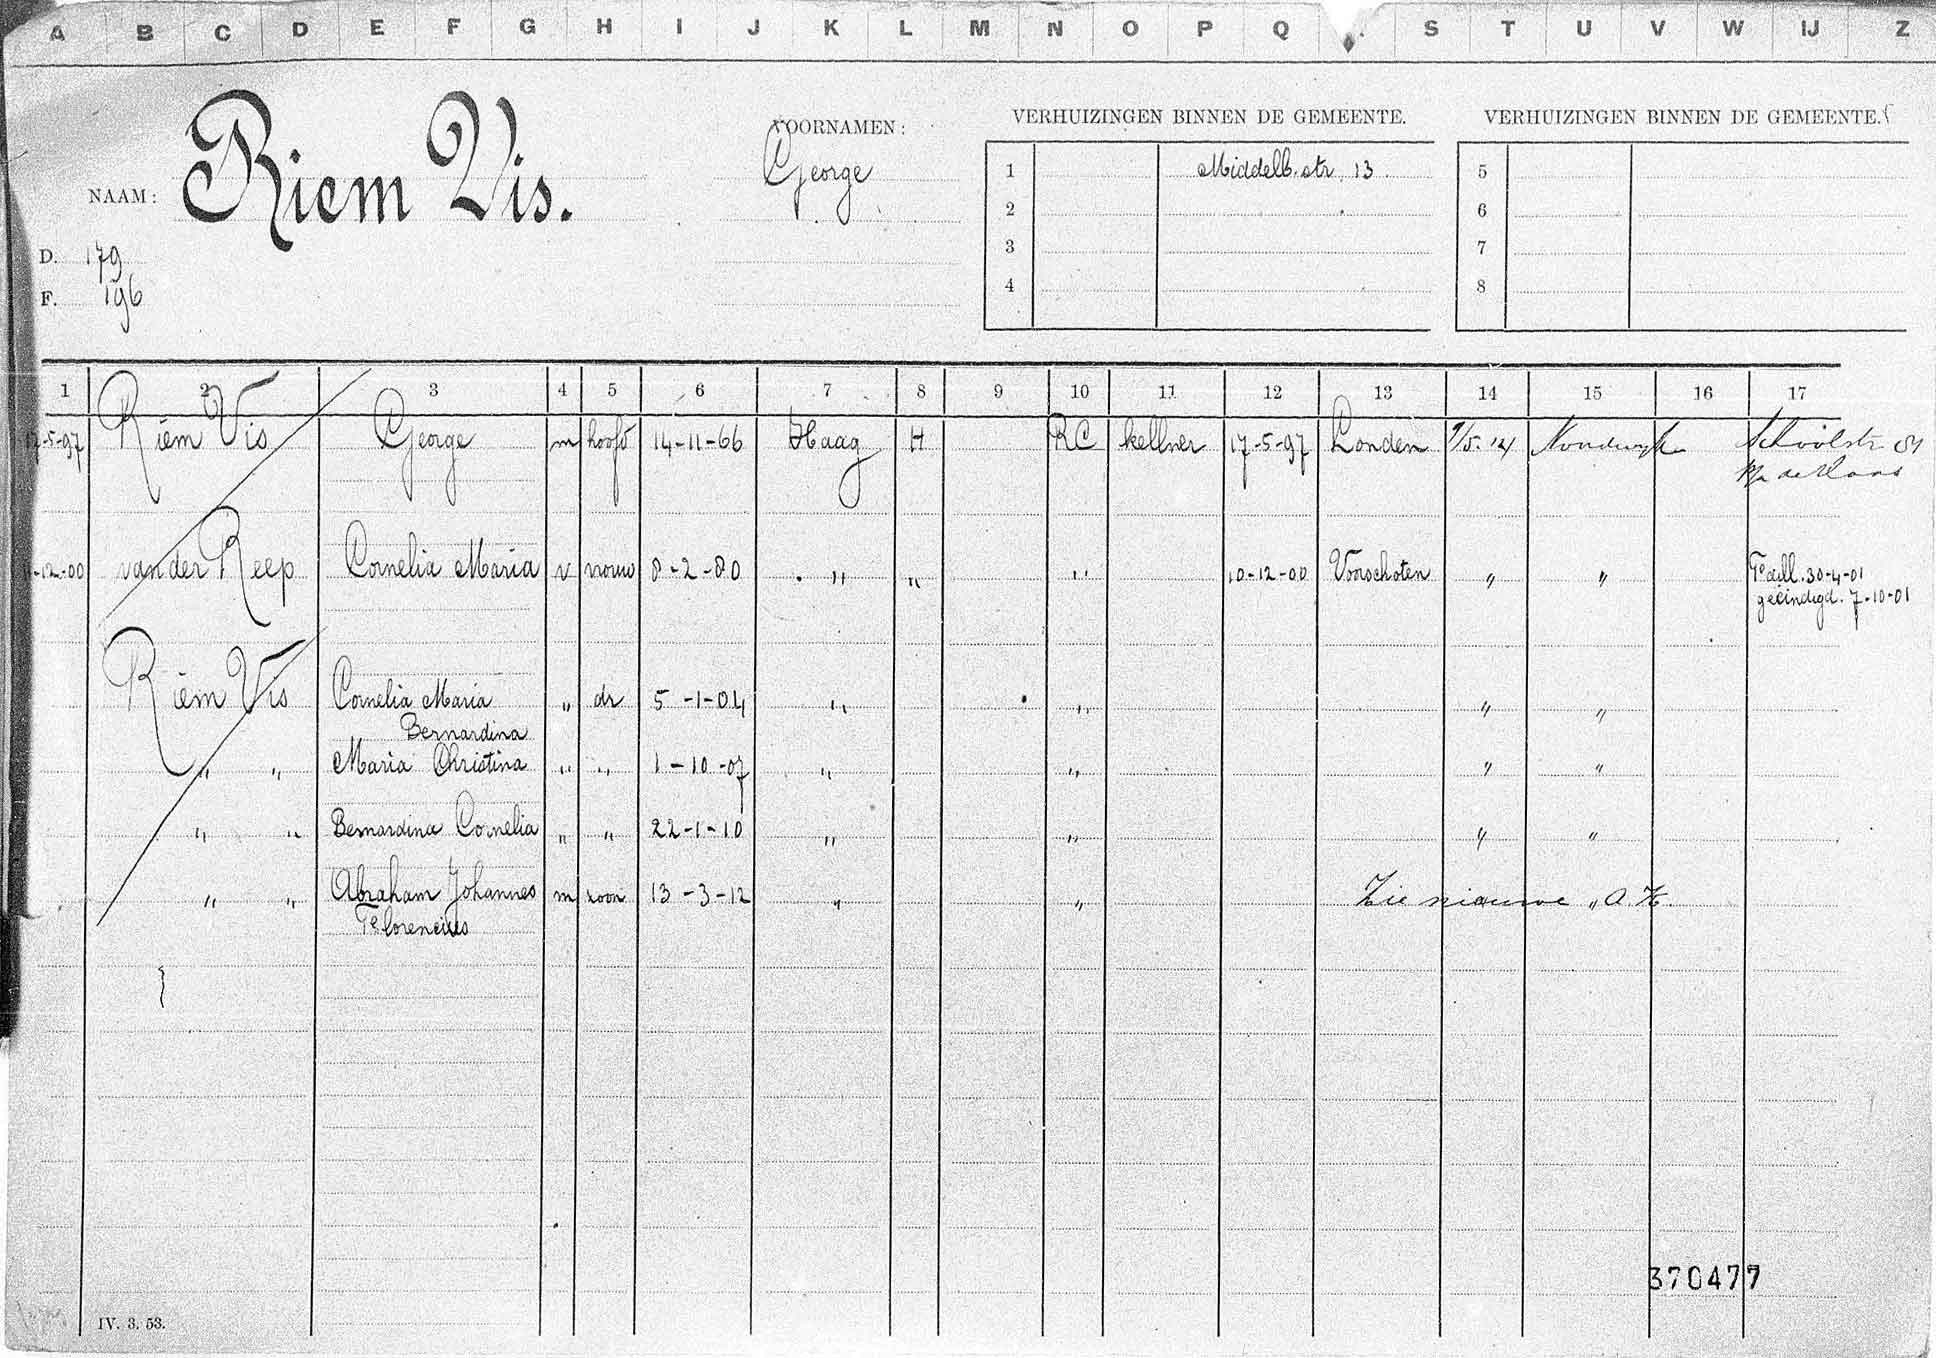 A B C D E F G H I J K L M N O P Q S T U V W IJ Z
NAAM: Riem Vis.
VOORNAMEN: George
D. 179
F. 196
VERHUIZINGEN BINNEN DE GEMEENTE.
1 Middelb. str. 13.
2
3
4
VERHUIZINGEN BINNEN DE GEMEENTE.
5
6
7
8
1 2 3 4 5 6 7 8 9 10 11 12 13 14 15 16 17
17-5-97 Riem Vis George m hoofd 14-11-66 Haag H RC kellner 17-5-97 Londen Noordwijk Schoolstr
-12-00 van der Reep Cornelia Maria v vrouw 8-2-80 " " " 10-12-00 Voorschoten " " 30-4-01
geëindigd. 7-10-01
Riem Vis Cornelia Maria " dr 5-1-04 " " " "
Bernardina
" " Maria Christina " " 1-10-07 " " " "
" " Bernardina Cornelia " " 22-1-10 " " " "
" " Abraham Johannes m zoon 13-3-12 " " Zie nieuwe "
Florencius
370477
IV. 3. 53.